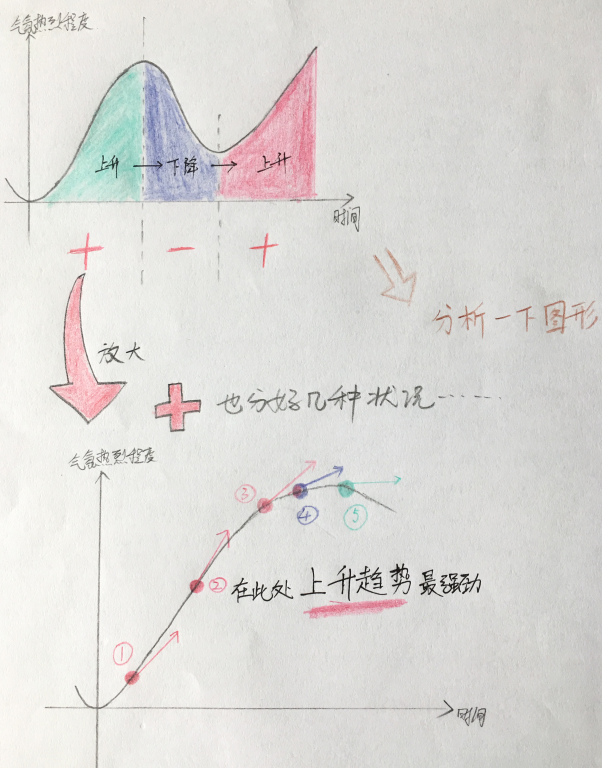 气氛热烈程度
上升 → 下降 → 上升
时间
+ - +
分析一下图形
放大
+ 也分好几种状况……
气氛热烈程度
③
④ ⑤
② 在此处上升趋势最强劲
①
时间